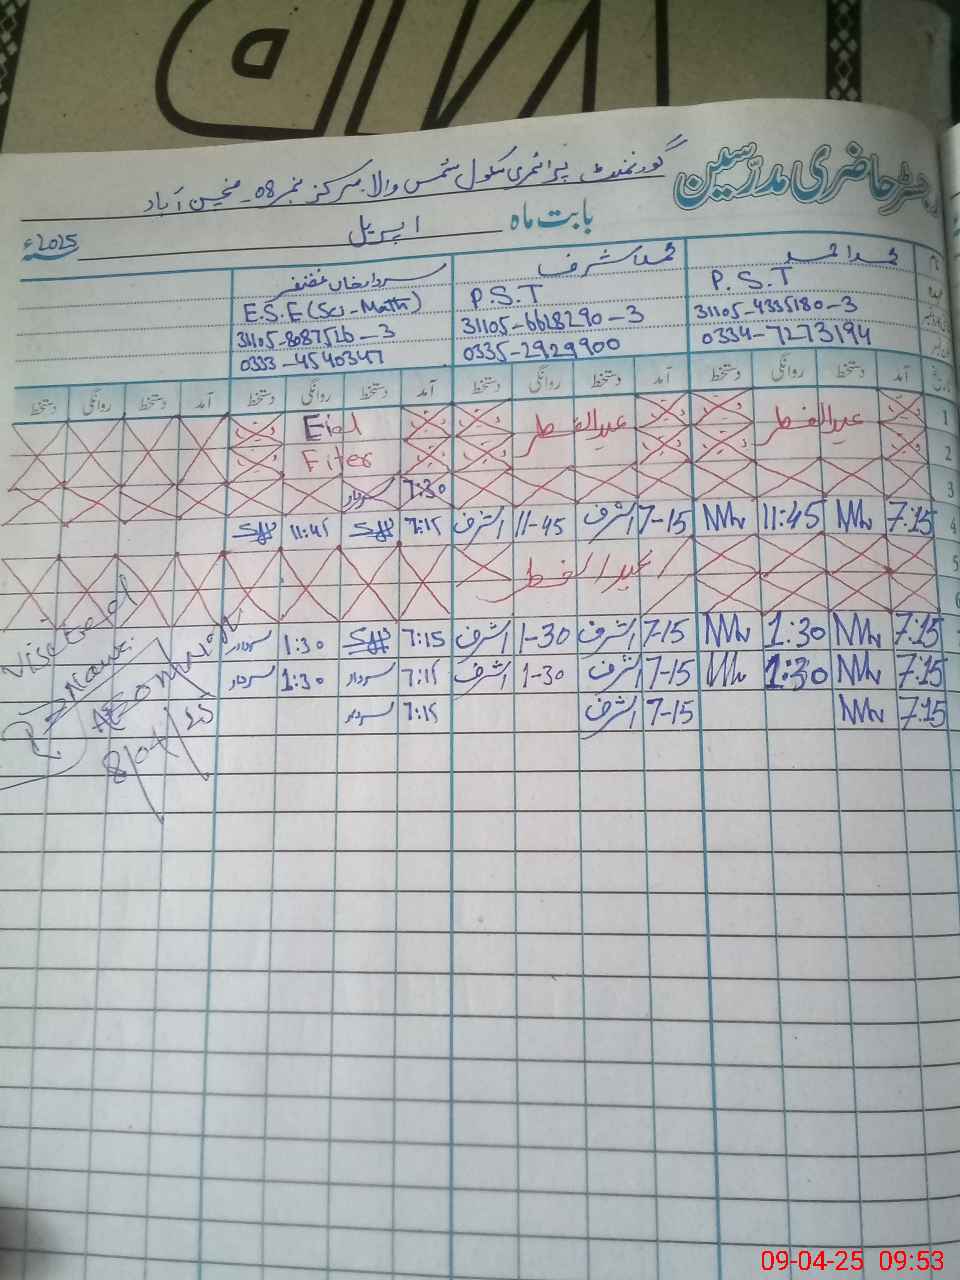 رجسٹر حاضری مدرسین
گورنمنٹ پرائمری سکول شمس والا مرکز نمبر 08۔ منچن آباد
بابت ماہ اپریل 2025ء
محمد احمد
P.S.T
31105-4335180-3
0334-7273194
محمد اشرف
P.S.T
31105-6628290-3
0335-2929900
سردار خاں غضنفر
E.S.E (Sci-Math)
31105-8087526-3
0333-4540347
تاریخ آمد دستخط روانگی دستخط آمد دستخط روانگی دستخط آمد دستخط روانگی دستخط آمد دستخط روانگی دستخط
1 عیدالفطر عیدالفطر Eid
2 Fiter
3 7:30 سردار
4 7:15 11:45 7-15 اشرف 11-45 اشرف 7:15 11:45
5 عید الفطر
6
7:15 1:30 7-15 اشرف 1-30 اشرف 7:15 1:30 سردار
7:15 1:30 7-15 اشرف 1-30 اشرف 7:15 سردار 1:30 سردار
7:15 7-15 اشرف 7:15 سردار
Visited
8/04/25
09-04-25 09:53